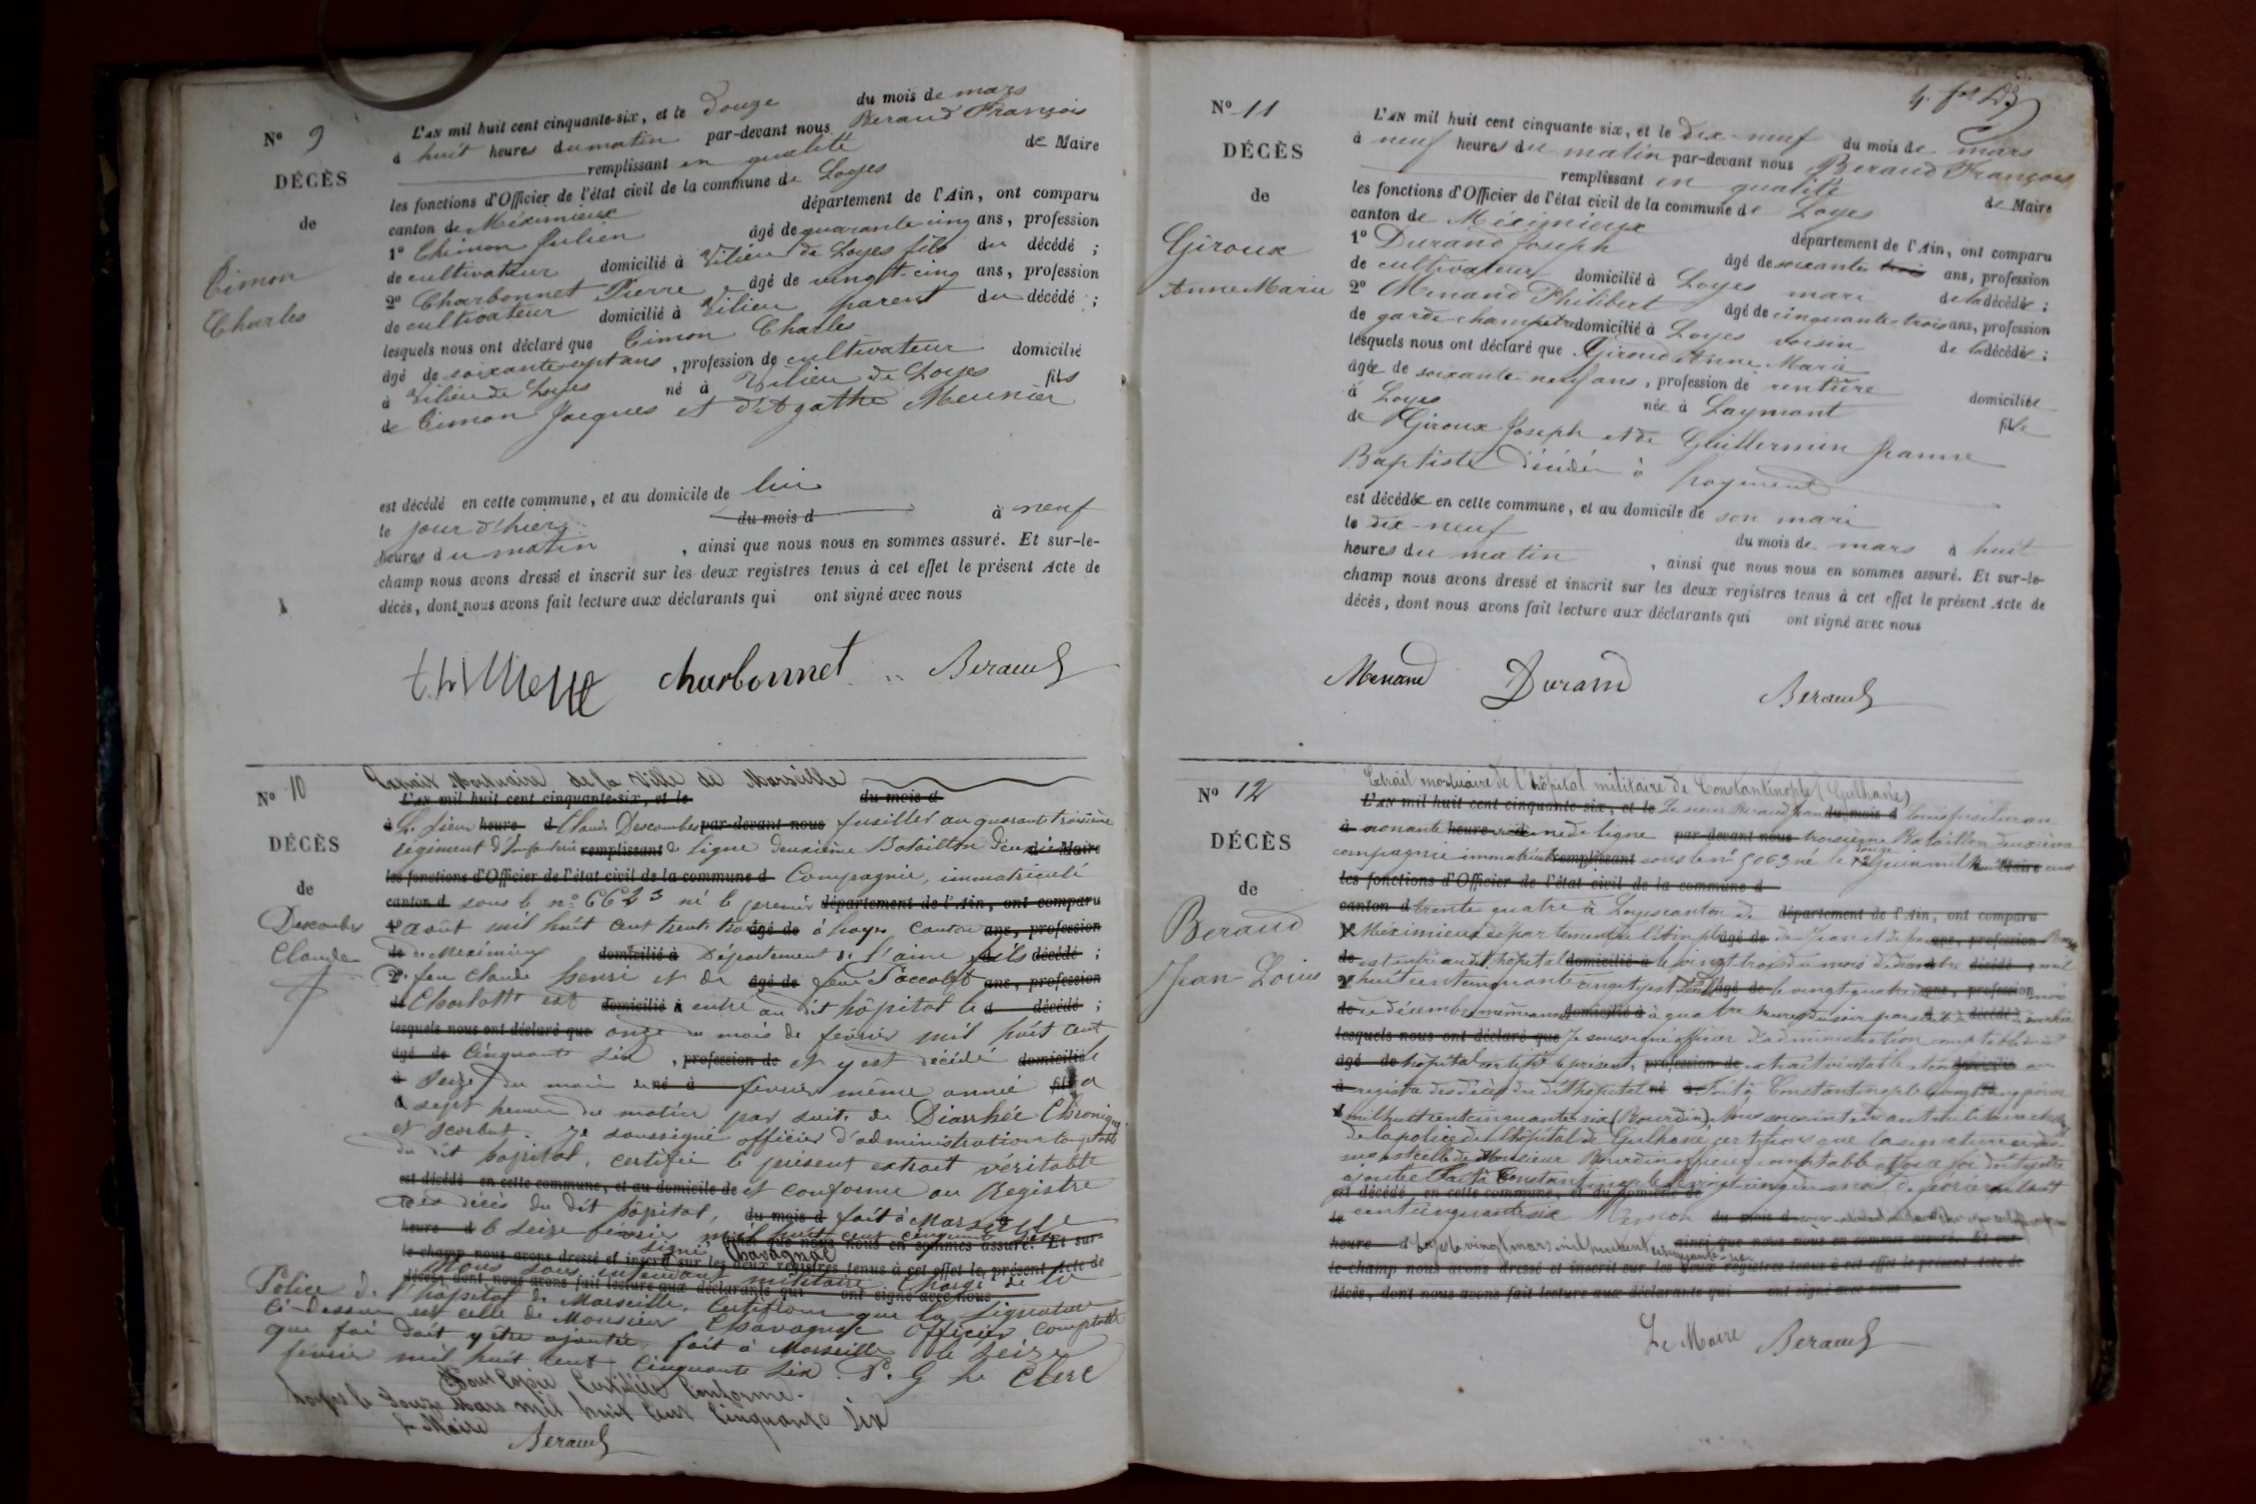 N° 9
DÉCÈS
de
Cimon
Charles
L'AN mil huit cent cinquante-six, et le douze du mois de mars
à huit heures du matin par-devant nous Beraud François
remplissant en qualité de Maire
les fonctions d'Officier de l'état civil de la commune de Loyes
canton de Méximieux département de l'Ain, ont comparu
1° Cimon Julien âgé de quarante cinq ans, profession
de cultivateur domicilié à Vilieu de Loyes fils du décédé ;
2° Charbonnet Pierre âgé de vingt cinq ans, profession
de cultivateur domicilié à Vilieu parent du décédé ;
lesquels nous ont déclaré que Cimon Charles
âgé de soixante sept ans, profession de cultivateur domicilié
à Vilieu de Loyes né à Vilieu de Loyes fils
de Cimon Jacques et d'Agathe Meunier
est décédé en cette commune, et au domicile de lui
le jour d'hier du mois d à neuf
heures du matin, ainsi que nous nous en sommes assuré. Et sur-le-
champ nous avons dressé et inscrit sur les deux registres tenus à cet effet le présent Acte de
décès, dont nous avons fait lecture aux déclarants qui ont signé avec nous
charbonnet Beraud
N° 10
DÉCÈS
de
Descombes
Claude
Extrait Mortuaire de la Ville de Marseille
L'AN mil huit cent cinquante-six, et le du mois d
à Le sieur heure d Claude Descombes par-devant nous fusillier au quarante troisième
régiment d'Infanterie remplissant de ligne deuxième Bataillon deuxième Maire
les fonctions d'Officier de l'état civil de la commune d Compagnie, immatriculé
canton d sous le n° 6623 né le premier département de l'Ain, ont comparu
1° août mil huit cent trente trois âgé de à Loyes canton ans, profession
de de Meximieux domicilié à Département de l'ain fils décédé ;
2° feu Claude henri et de âgé de feue Paccolet ans, profession
de Charlotte est domicilié à entré au dit hôpital le d décédé ;
lesquels nous ont déclaré que onze du mois de février mil huit cent
âgé de cinquante six, profession de et y est décédé domicilié le
à seize du mois de né à février même année fils a
d sept heures du matin par suite de Diarrhée Chronique
et scorbut. Je soussigné officier d'administration comptable
du dit hôpital, certifie le présent extrait véritable
est décédé en cette commune, et au domicile de et conforme au Registre
des décès du dit hôpital, du mois d fait à Marseille
heure d le seize février mil huit cent cinquante six ainsi que nous nous en sommes assuré. Et sur-
le-champ nous avons dressé et inscrit sur les deux registres tenus à cet effet le présent Acte de
signé Chavagnac
Nous sous intendant militaire chargé de la
décès, dont nous avons fait lecture aux déclarants qui ont signé avec nous
Police de l'hôpital de Marseille, Certifions que la signature
Ci-dessus est celle de Monsieur Chavagnac officier comptable
que foi doit y être ajoutée, fait à Marseille le seize
février mil huit cent cinquante six. P. G Le Clerc
Pour copie Certifiée Conforme.
Loyes le douze Mars mil huit cent cinquante six
Le Maire Beraud
N° 11
DÉCÈS
de
Giroux
Anne Marie
L'AN mil huit cent cinquante-six, et le dix-neuf du mois de mars
à neuf heures du matin par-devant nous Beraud François
remplissant en qualité de Maire
les fonctions d'Officier de l'état civil de la commune de Loyes
canton de Méximieux département de l'Ain, ont comparu
1° Durand Joseph âgé de soixante trois ans, profession
de cultivateur domicilié à Loyes mari de la décédée ;
2° Menand Philibert âgé de cinquante trois ans, profession
de garde champêtre domicilié à Loyes voisin de la décédée ;
lesquels nous ont déclaré que Giroud Anne Marie
âgée de soixante neuf ans, profession de rentière domiciliée
à Loyes née à Laymont fille
de Giroux Joseph et de Guillermin Jeanne
Baptiste décédés à
est décédée en cette commune, et au domicile de son mari
le dix-neuf du mois de mars à huit
heures du matin, ainsi que nous nous en sommes assuré. Et sur-le-
champ nous avons dressé et inscrit sur les deux registres tenus à cet effet le présent Acte de
décès, dont nous avons fait lecture aux déclarants qui ont signé avec nous
Menand Durand Beraud
N° 12
DÉCÈS
de
Beraud
Jean-Louis
Extrait mortuaire de l'hôpital militaire de Constantinople (Gulhané)
L'AN mil huit cent cinquante-six, et le Le sieur Beraud Jean du mois d Louis fusilier au
à nonante heure de ligne par-devant nous troisième Bataillon deuxième
compagnie immatriculé remplissant sous le n° 5063 né le 12 juin mil huit Maire cent
les fonctions d'Officier de l'état civil de la commune d
canton d trente quatre à Loyes canton de département de l'Ain, ont comparu
1° Méximieux département de l'Ain fils âgé de de Jean et de ans, profession
de est entré au dit hôpital domicilié à le vingt trois du mois de décembre décédé mil
2° huit cent cinquante cinq et y est décédé âgé de le vingt quatre ans, profession
de décembre même année domicilié à à quatre heures du soir par suite décédé
lesquels nous ont déclaré que Je soussigné officier d'administration comptable
âgé de hôpital certifie le présent, profession de extrait véritable domicilié
à registre des décès du dit hôpital né à Fait à Constantinople
mil huit cent cinquante six (Bourdin) Nous sous intendant militaire chargé
de la police de l'hôpital de Gulhané certifions que la signature
est celle de Monsieur Bourdin officier comptable
ajoutée Fait à Constantinople le vingt cinq du mois de
est décédé en cette commune, et au domicile de
le cent cinquante six du mois d
heure d Loyes le vingt mars mil huit cent cinquante six ainsi que nous nous en sommes assuré. Et sur-
le-champ nous avons dressé et inscrit sur les deux registres tenus à cet effet le présent Acte de
décès, dont nous avons fait lecture aux déclarants qui ont signé avec nous
Le Maire Beraud